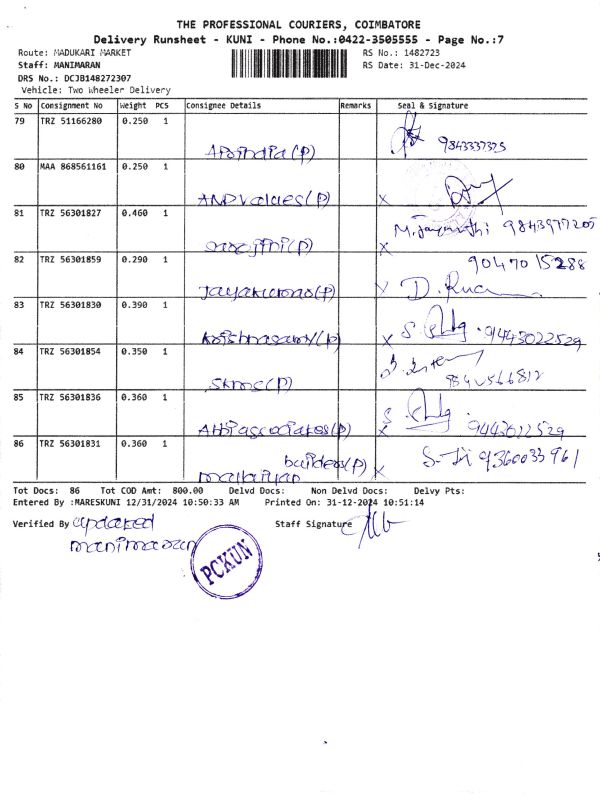 THE PROFESSIONAL COURIERS, COIMBATORE
Delivery Runsheet - KUNI - Phone No.:0422-3505555 - Page No.:7
Route: MADUKARI MARKET RS No.: 1482723
Staff: MANIMARAN RS Date: 31-Dec-2024
DRS No.: DCJB148272307
Vehicle: Two Wheeler Delivery
S No Consignment No Weight PCS Consignee Details Remarks Seal & Signature
79 TRZ 51166280 0.250 1
9843337325
80 MAA 868561161 0.250 1
ANDvalues(P) X
81 TRZ 56301827 0.460 1
M. Jayanthi 9843977205
sarojini(P) X
82 TRZ 56301859 0.290 1 9047015288
Jayakumar(P) D.
83 TRZ 56301830 0.390 1
Krishnasamy(P) X S 9443022529
84 TRZ 56301854 0.350 1
(P)
85 TRZ 56301836 0.360 1
associates(P) X S 9443022529
86 TRZ 56301831 0.360 1
builders(P) X 9360033961
Tot Docs: 86 Tot COD Amt: 800.00 Delvd Docs: Non Delvd Docs: Delvy Pts:
Entered By :MARESKUNI 12/31/2024 10:50:33 AM Printed On: 31-12-2024 10:51:14
Verified By updated Staff Signature
manimaran
PCKUN